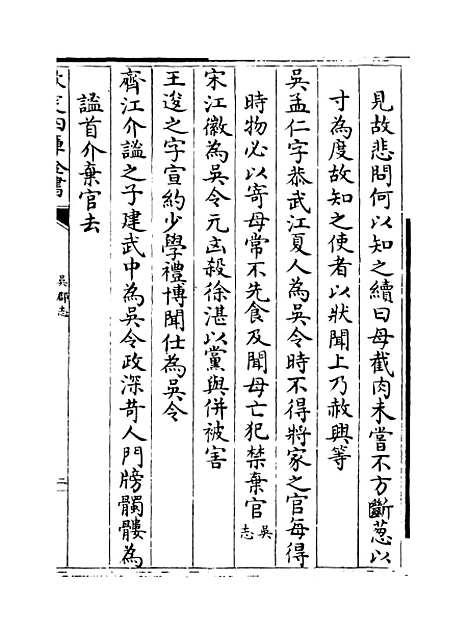 見故悲問何以知之續曰母截肉未嘗不方斷葱以
寸為度故知之使者以狀聞上乃赦興等
吳孟仁字恭武江夏人為吳令時不得將家之官每得
時物必以寄母常不先食及聞母亡犯禁棄官吳志
宋江徽為吳令元凶殺徐湛以黨與併被害
王逡之字宣約少學禮博聞仕為吳令
齊江介謐之子建武中為吳令政深苛人門牓髑髏為
謐首介棄官去
欽定四庫全書
吳郡志
二